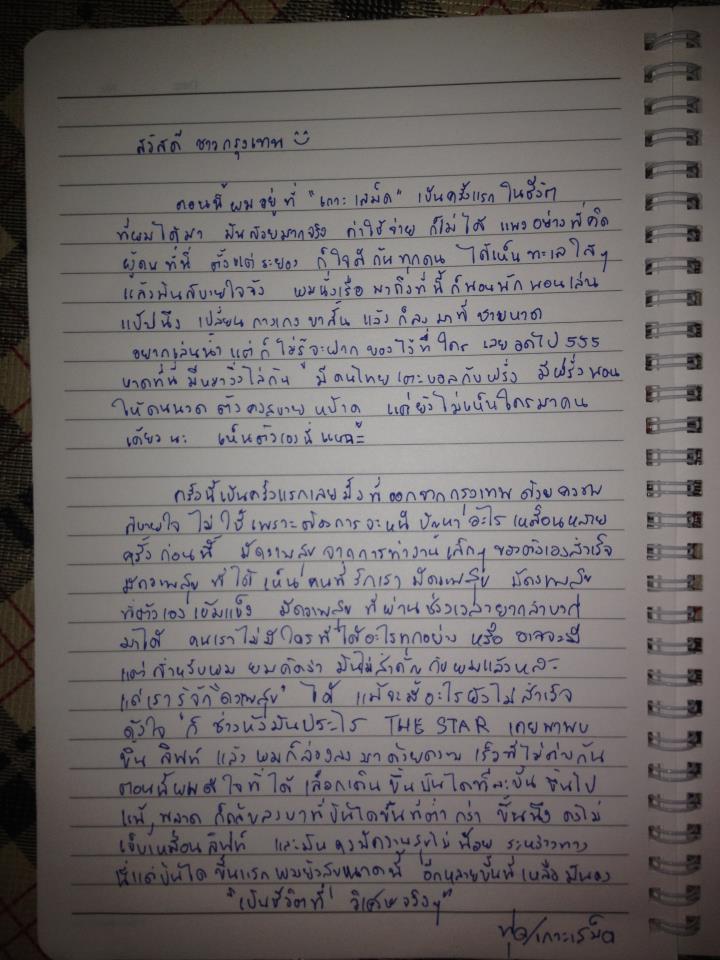 สวัสดี ชาวกรุงเทพ
ตอนนี้ผมอยู่ที่ "เกาะเสม็ด" เป็นครั้งแรก ในชีวิต
ที่ผมได้มา มันสวยมากจริง ค่าใช้จ่าย ก็ไม่ได้ แพงอย่างที่คิด
ผู้คนที่นี่ ตั้งแต่ระยอง ก็ใจดีกันทุกคน ได้เห็นทะเลใสๆ
แล้วมันสบายใจจัง ผมนั่งเรือ มาถึงที่นี้ ก็นอนพัก นอนเล่น
แป๊ปนึง เปลี่ยน กางเกงขาสั้น แล้ว ก็ลงมาที่ ชายหาด
อยากเล่นน้ำ แต่ ก็ ไม่รู้จะฝาก ของไว้ที่ใคร เลย อดไป 555
หาดที่นี่ มีหมาวิ่งไล่กัน มีคนไทยเตะบอลกับฝรั่ง มีฝรั่งนอน
ให้คนนวด ตัวคงสบาย แต่ยังไม่เห็นใครมาคน
เดียวนะ เห็นตัวเองนี่แหละ
ครั้งนี้เป็นครั้งแรกเลยมั้ง ที่ออกจากกรุงเทพ ด้วยความ
สบายใจ ไม่ใช่เพราะต้องการจะหนี ปัญหาอะไร เหมือนหลาย
ครั้งก่อนนี้ มีความสุข จากการทำงานเล็กๆ ของตัวเองสำเร็จ
มีความสุข ที่ได้ เห็นคนที่รักเรา มีความสุข มีความสุข
ที่ตัวเองเข้มแข็ง มีความสุข ที่ผ่านช่วงเวลายากลำบาก
มาได้ คนเราไม่มีใครที่ได้อะไรทุกอย่าง หรือ อาจจะมี
แต่สำหรับผม ผมคิดว่า มันไม่สำคัญกับผมแล้วหละ
แต่เรารู้จัก "ความสุข" ได้ แม้จะมีอะไรยังไม่สำเร็จ
ดั่งใจ ก็ ช่างหัวมันประไร THE STAR เคยพาผม
ขึ้น ลิฟท์ แล้ว ผมก็ล่องลงมาด้วยความ เร็วที่ไม่ต่างกัน
ตอนนี้ผมดีใจที่ได้ เลือกเดินขึ้นบันไดทีละขั้น ขึ้นไป
แม้, พลาด ก็กลับลงมาที่บันไดขั้นที่ต่ำกว่า ขั้นนึง คงไม่
เจ็บเหมือนลิฟท์ และมันคงมีความสุขไม่น้อย ระหว่างทาง
นี่แค่บันไดขั้นแรกผมยังสุขขนาดนี้ อีกหลายขั้นที่เหลือ มันคง
"เป็นชีวิตที่ วิเศษจริงๆ"
/เกาะเสม็ด